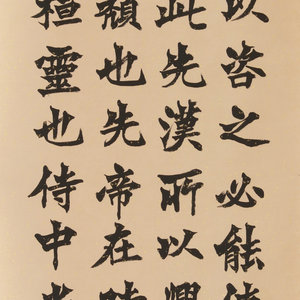 以咨之必能
此先漢所以興
頹也先帝在
桓靈也侍中